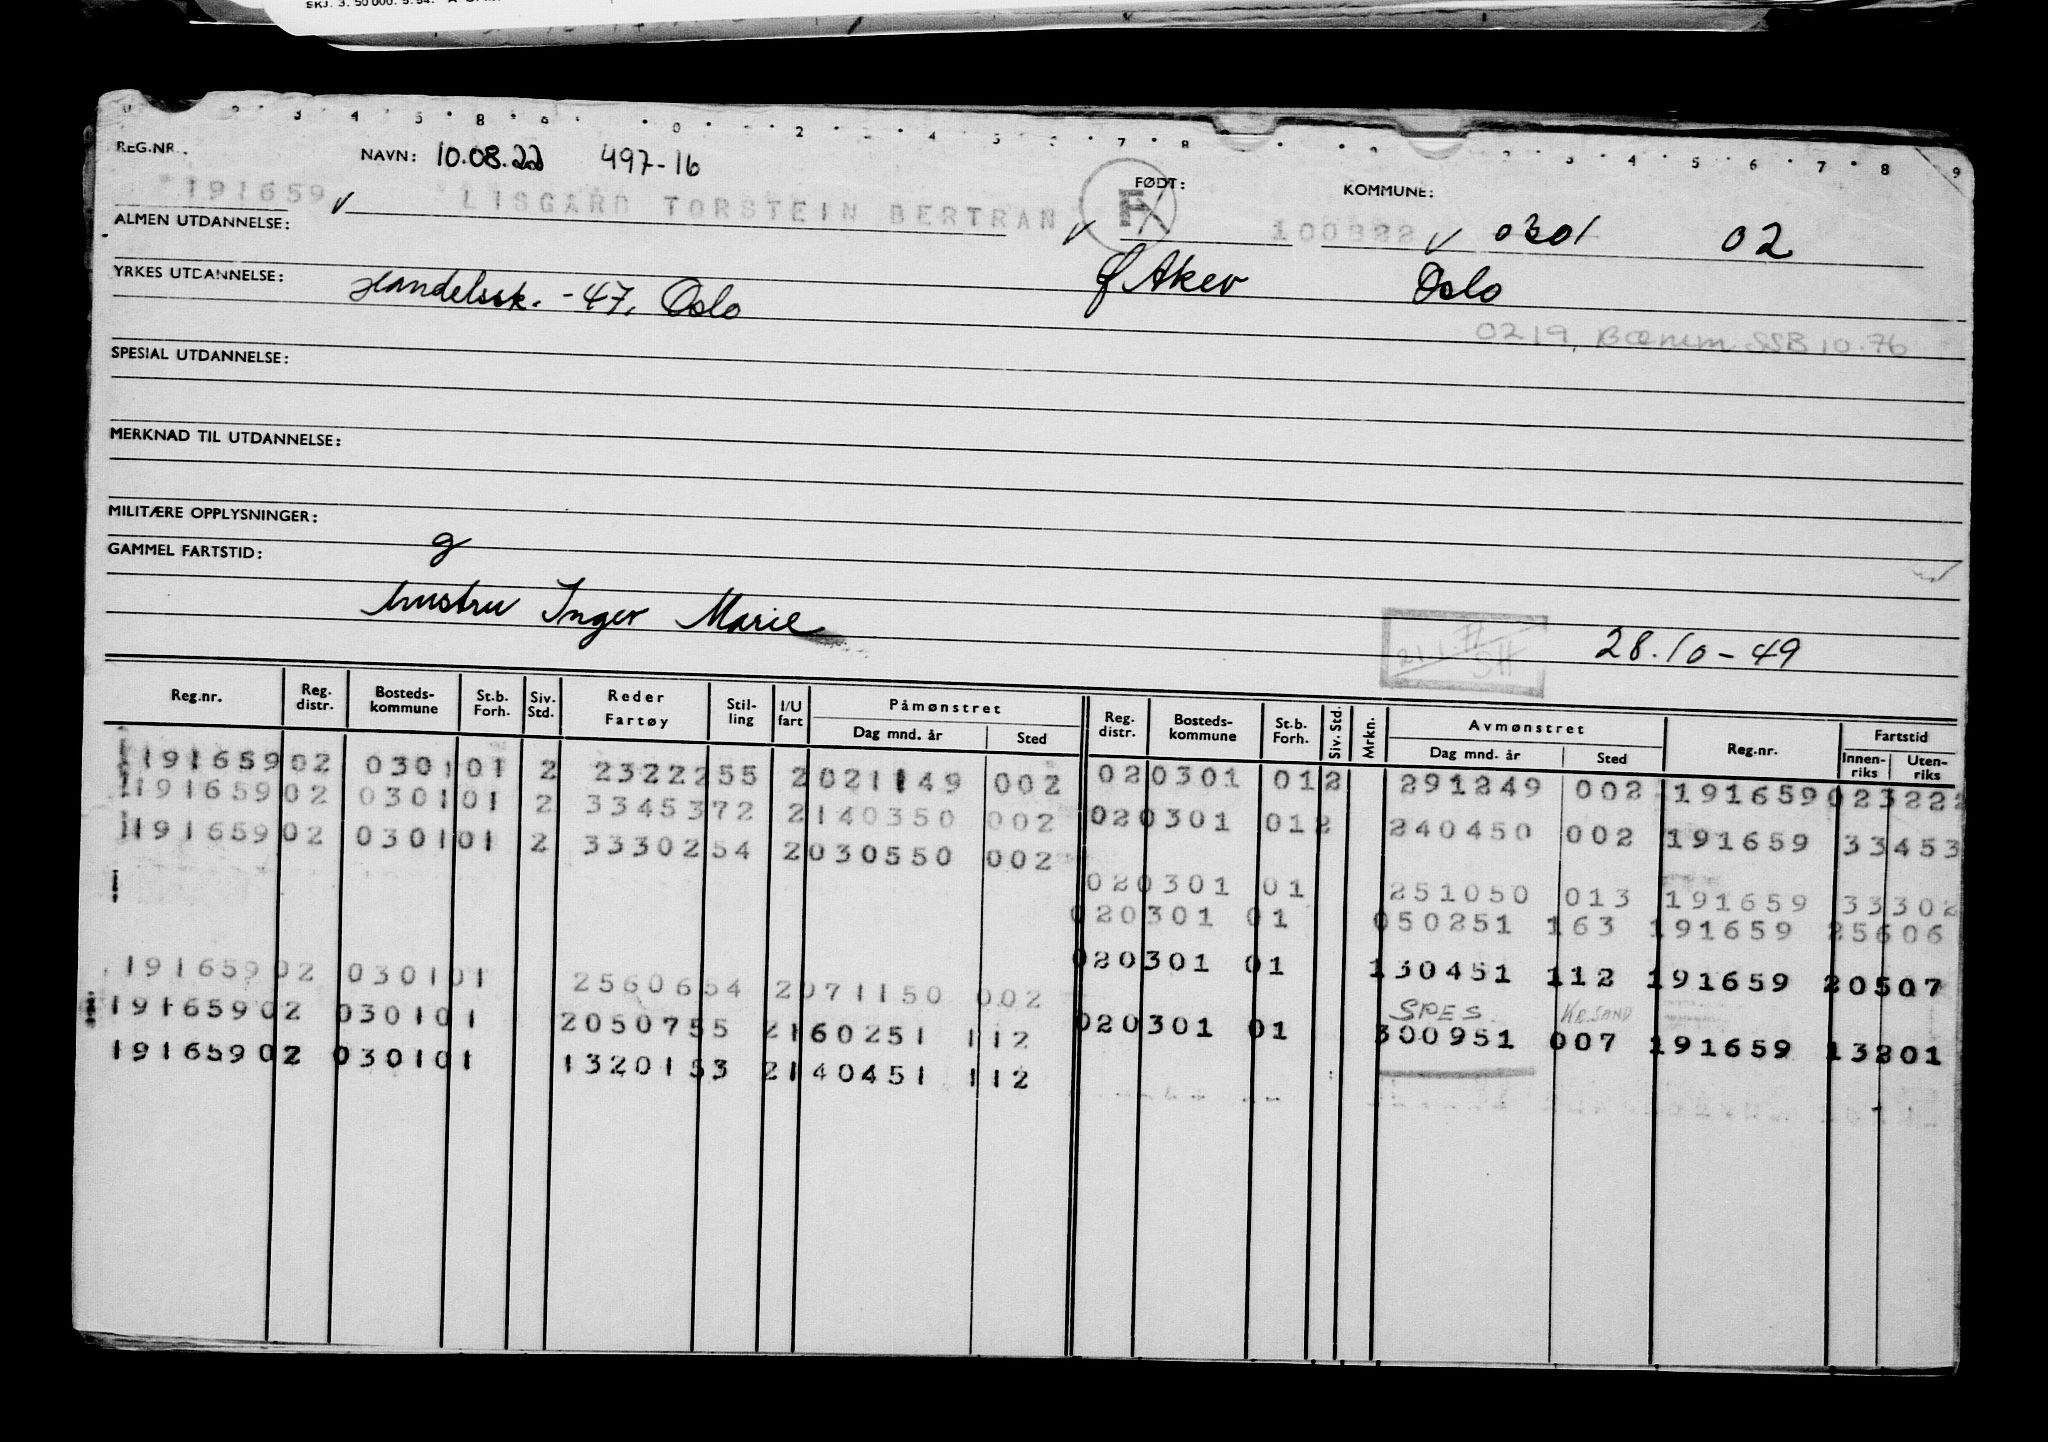 SKJ. 3. 50 000. 5. 54.
REG.NR.
NAVN: 10.08.22 497-16
FØDT:
KOMMUNE:
191659 LISGÅRD TORSTEIN BERTRAN F 100822 0301 02
ALMEN UTDANNELSE:
YRKES UTDANNELSE: Handelssk. -47, Oslo f Aker Oslo
0219, Bærum SSB 10.76
SPESIAL UTDANNELSE:
MERKNAD TIL UTDANNELSE:
MILITÆRE OPPLYSNINGER:
g
GAMMEL FARTSTID:
hustru Inger Marie 28.10-49
Reg.nr. Reg. distr. Bosteds-kommune St.b. Forh. Siv. Std. Reder Fartøy Stil-ling I/U fart Påmønstret Dag mnd. år Sted Reg. distr. Bosteds-kommune St.b. Forh. Siv. Std. Mrkn. Avmønstret Dag mnd. år Sted Reg.nr. Fartstid Innen-riks Uten-riks
191659 02 0301 01 2 23222 55 2 021149 002 02 0301 01 2 291249 002 191659 023222
191659 02 0301 01 2 33453 72 2 140350 002 02 0301 01 2 240450 002 191659 33453
191659 02 0301 01 2 33302 54 2 030550 002
02 0301 01 251050 013 191659 33302
02 0301 01 050251 163 191659 25606
191659 02 0301 01 25606 54 2 071150 002 02 0301 01 130451 112 191659 20507
SPES. KR.SAND
191659 02 0301 01 20507 55 2 160251 112 02 0301 01 300951 007 191659 13201
191659 02 0301 01 13201 53 2 140451 112